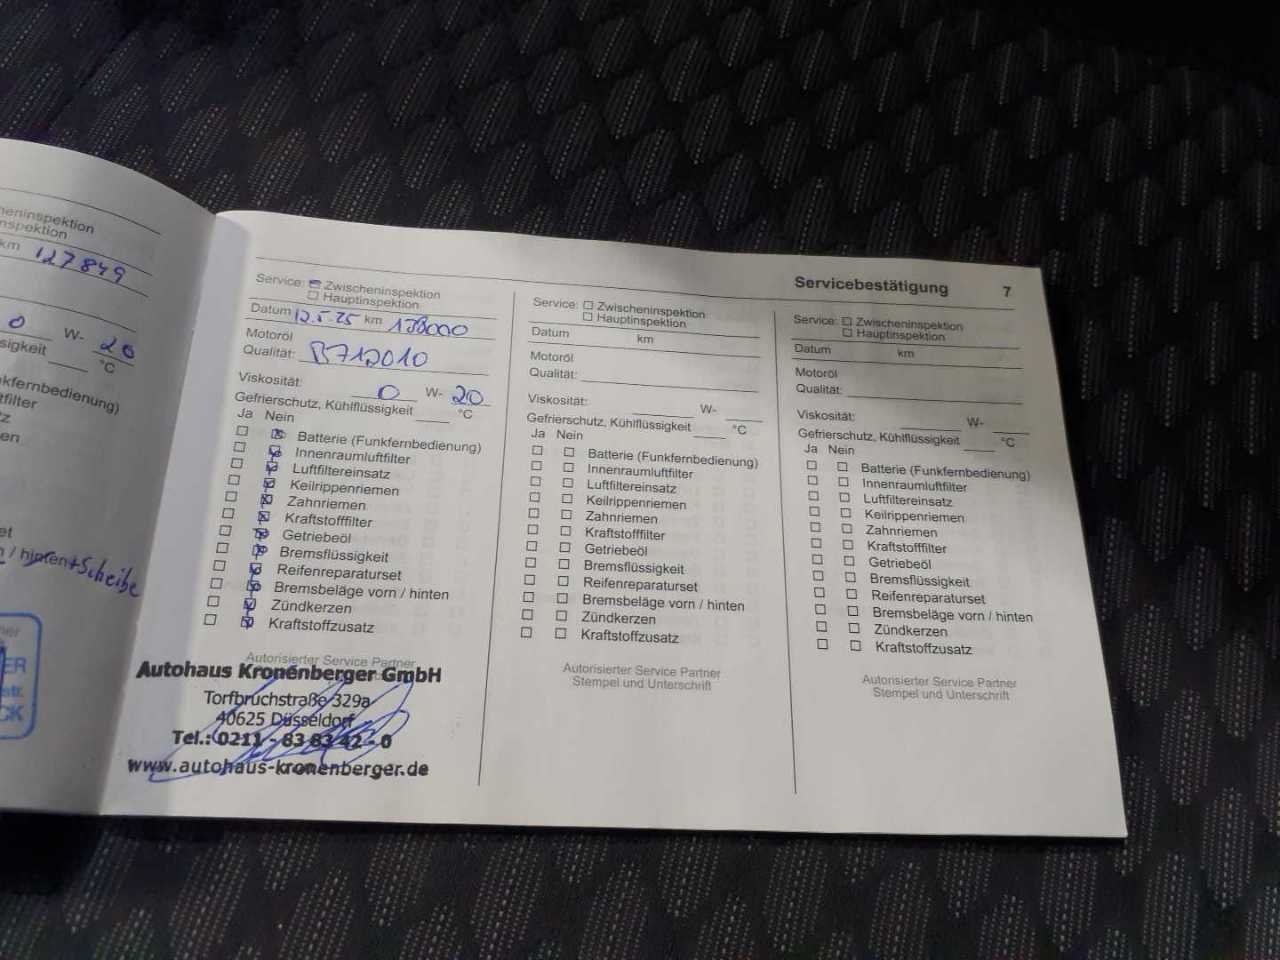 heninspektion
nspektion
km 127849
0 W- 20
sigkeit °C
nkfernbedienung)
filter
tz
en
et
/ hinten+Scheibe
ner
ER
str.
CK
Servicebestätigung 7
Service: Zwischeninspektion
Hauptinspektion
Datum 12.5.25 km 138000
Motoröl
Qualität: B712010
Viskosität: 0 W- 20
Gefrierschutz, Kühlflüssigkeit °C
Ja Nein
Batterie (Funkfernbedienung)
Innenraumluftfilter
Luftfiltereinsatz
Keilrippenriemen
Zahnriemen
Kraftstofffilter
Getriebeöl
Bremsflüssigkeit
Reifenreparaturset
Bremsbeläge vorn / hinten
Zündkerzen
Kraftstoffzusatz
Autorisierter Service Partner
Autohaus Kronenberger GmbH
Torfbruchstraße 329a
40625 Düsseldorf
Tel.: 0211 - 83 83 42 - 0
www.autohaus-kronenberger.de
Service: Zwischeninspektion
Hauptinspektion
Datum km
Motoröl
Qualität:
Viskosität: W-
Gefrierschutz, Kühlflüssigkeit °C
Ja Nein
Batterie (Funkfernbedienung)
Innenraumluftfilter
Luftfiltereinsatz
Keilrippenriemen
Zahnriemen
Kraftstofffilter
Getriebeöl
Bremsflüssigkeit
Reifenreparaturset
Bremsbeläge vorn / hinten
Zündkerzen
Kraftstoffzusatz
Autorisierter Service Partner
Stempel und Unterschrift
Service: Zwischeninspektion
Hauptinspektion
Datum km
Motoröl
Qualität:
Viskosität: W-
Gefrierschutz, Kühlflüssigkeit °C
Ja Nein
Batterie (Funkfernbedienung)
Innenraumluftfilter
Luftfiltereinsatz
Keilrippenriemen
Zahnriemen
Kraftstofffilter
Getriebeöl
Bremsflüssigkeit
Reifenreparaturset
Bremsbeläge vorn / hinten
Zündkerzen
Kraftstoffzusatz
Autorisierter Service Partner
Stempel und Unterschrift